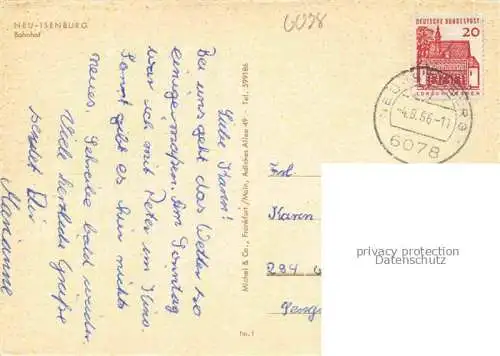 NEU-ISENBURG
Bahnhof
6078
Liebe Karin!
Bei uns geht das Wetter so
einigermaßen. Am Sonntag
war ich mit Peter im Kino.
Sonst gibt es hier nichts
neues. Schreibe bald wieder.
Viele herzliche Grüße
sendet Dir
Marianne
Michel & Co., Frankfurt/Main, Adlches Allee 49 - Tel. 599186
Nr. 1
DEUTSCHE BUNDESPOST
20
6078
Frl.
Karin
284
privacy protection
Datenschutz